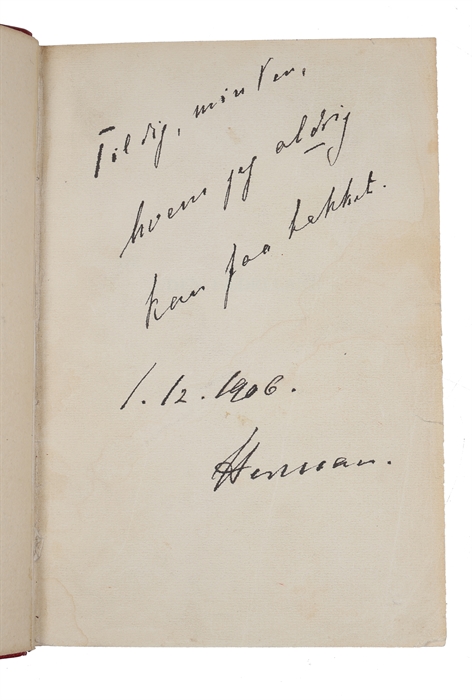 Til dig, min Ven,
hvem jeg aldrig
kan faa takket.
1.12.1906.
Herman.